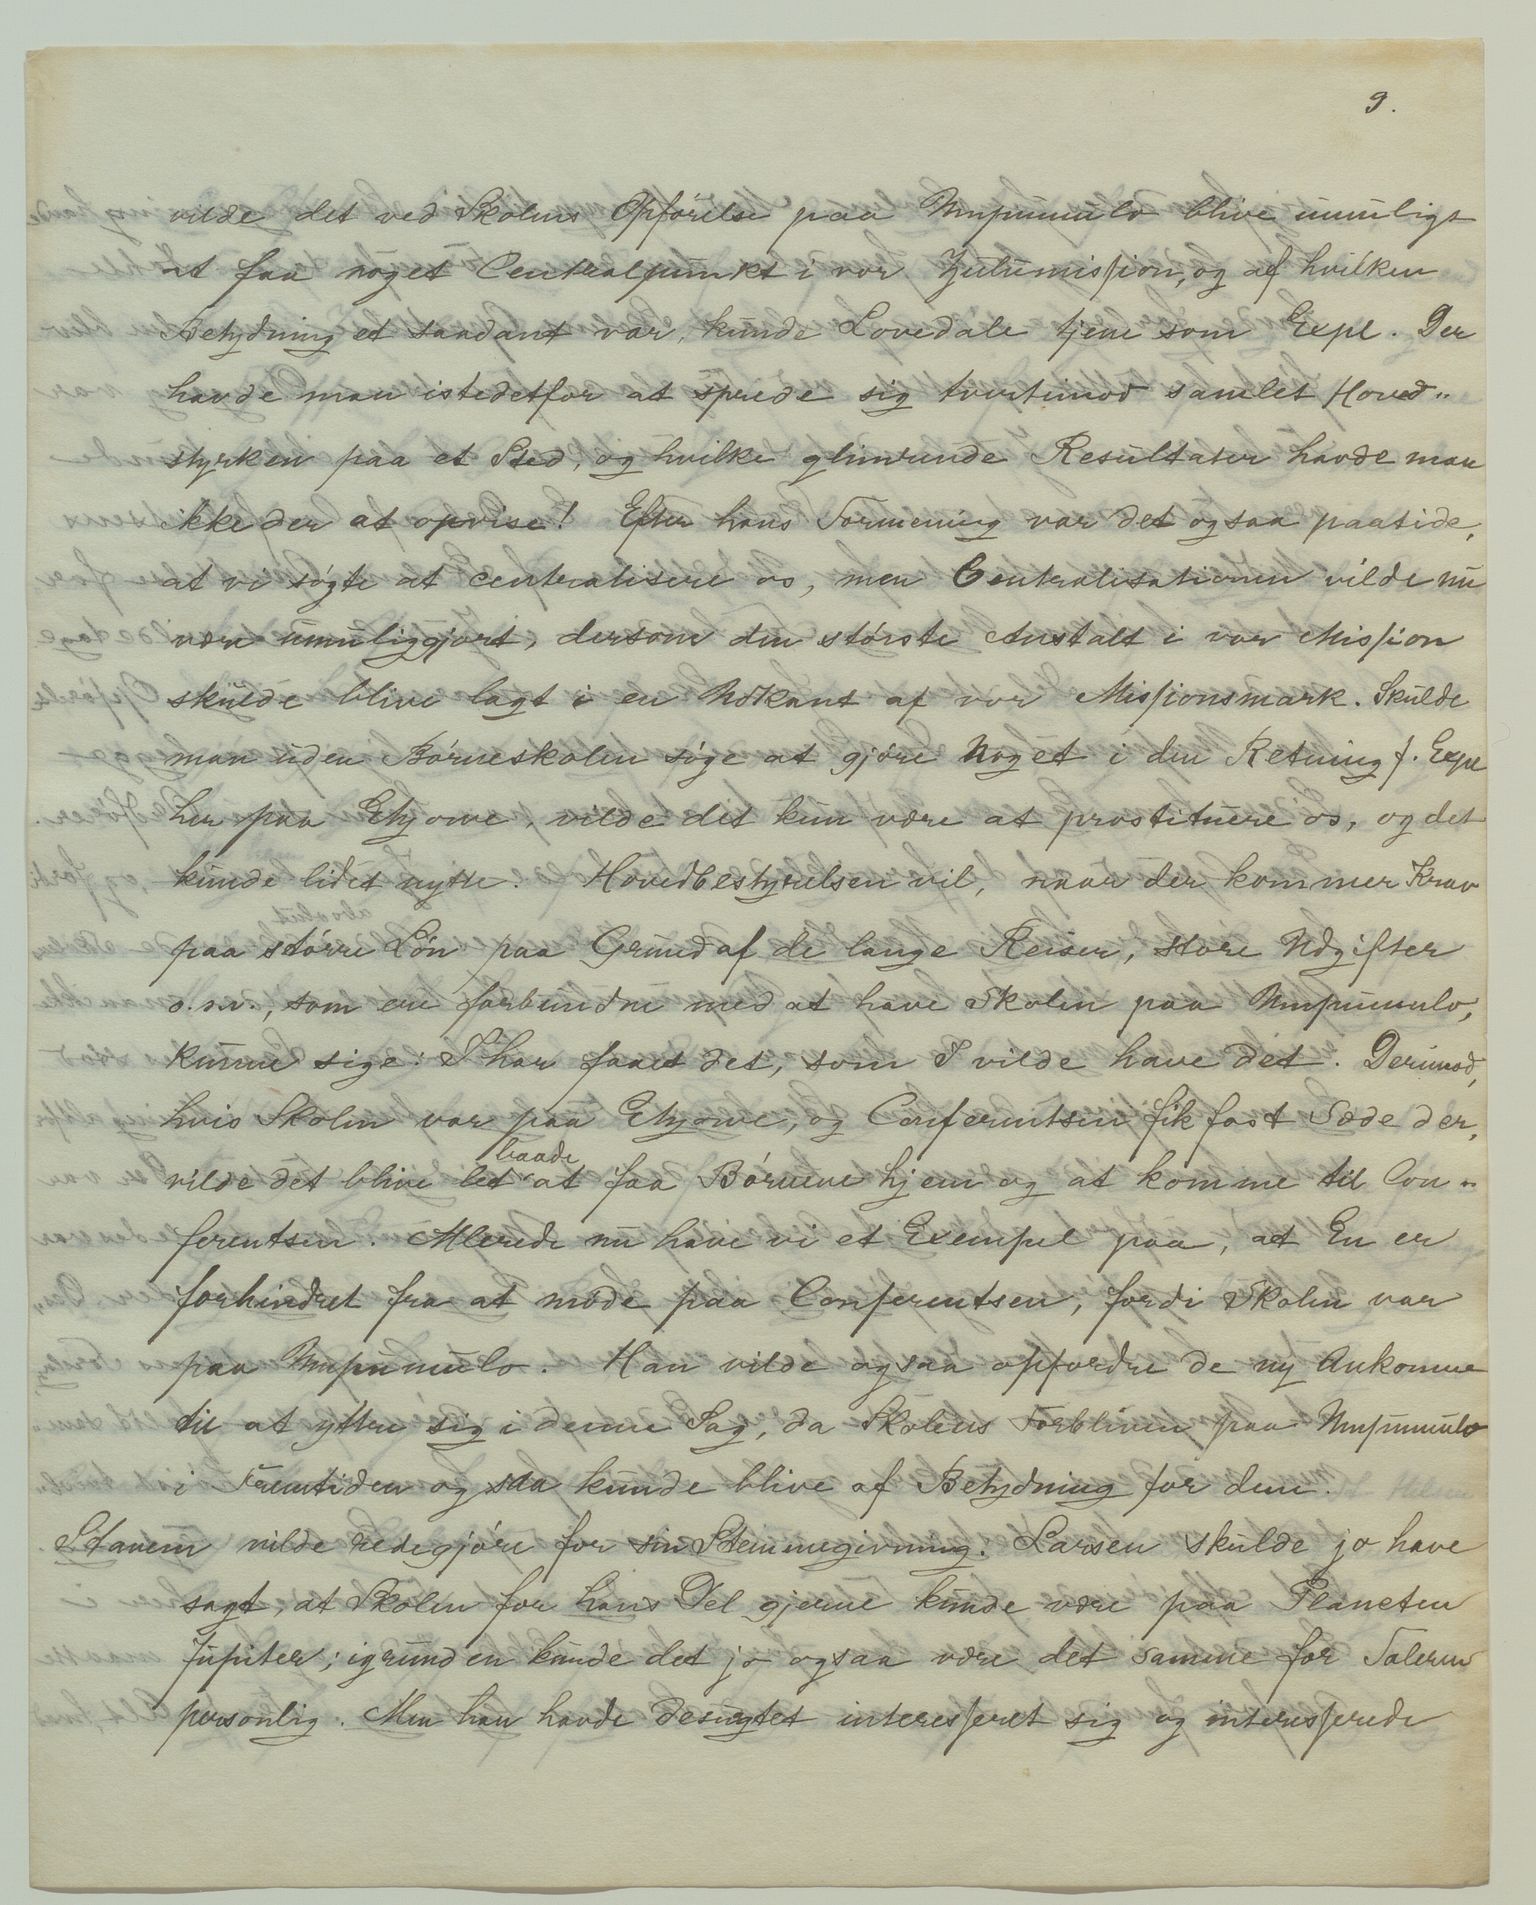 9.
vilde det ved Skolens Opførelse paa Umpumulo blive umuligt
at faa noget Centralpunkt i vor Zulumission, og af hvilken
Betydning et saadant var, kunde Lovedale tjene som Expl. Der
havde man istedetfor at sprede sig tvertimod samlet Hoved„
styrken paa et Sted, og hvilke glimrende Resultater havde man
ikke der at opvise! Efter hans Formening var det ogsaa paatide,
at vi søgte at centralisere os, men Centralisationen vilde nu
være umuliggjort, dersom den største Anstalt i vor Mission
skulde blive lagt i en Udkant af vor Missionsmark. Skulde
man uden Børneskolen søge at gjøre Noget i den Retning f. Expl
her paa Ekjowe, vilde det kun være at prostituere os, og det
kunde lidet nytte. Hovedbestyrelsen vil, naar der kommer Krav
paa større Løn paa Grund af de lange Reiser, store Udgifter
o.s.v., som ere forbundne med at have Skolen paa Umpumulo,
kunne sige: I har faaet det, som I vilde have det. Derimod,
hvis Skolen var paa Ekjowe, og Conferentsen fik fast Sæde der,
vilde det blive let baade at faa Børnene hjem og at komme til Con„
ferentsen. Allerede nu have vi et Exempel paa, at En er
forhindret fra at møde paa Conferentsen, fordi Skolen var
paa Umpumulo. Han vilde ogsaa opfordre de ny Ankomne
til at yttre sig i denne Sag, da Skolens Forbliven paa Umpumulo
i Fremtiden ogsaa kunde blive af Betydning for dem.
Stavem vilde redegjøre for sin Stemmegivning. Larsen skulde jo have
sagt, at Skolen for hans Del gjerne kunde være paa Planeten
Jupiter; igrunden kunde det jo ogsaa være det samme for Taleren
personlig. Men han havde desuagtet interesseret sig og interesserede